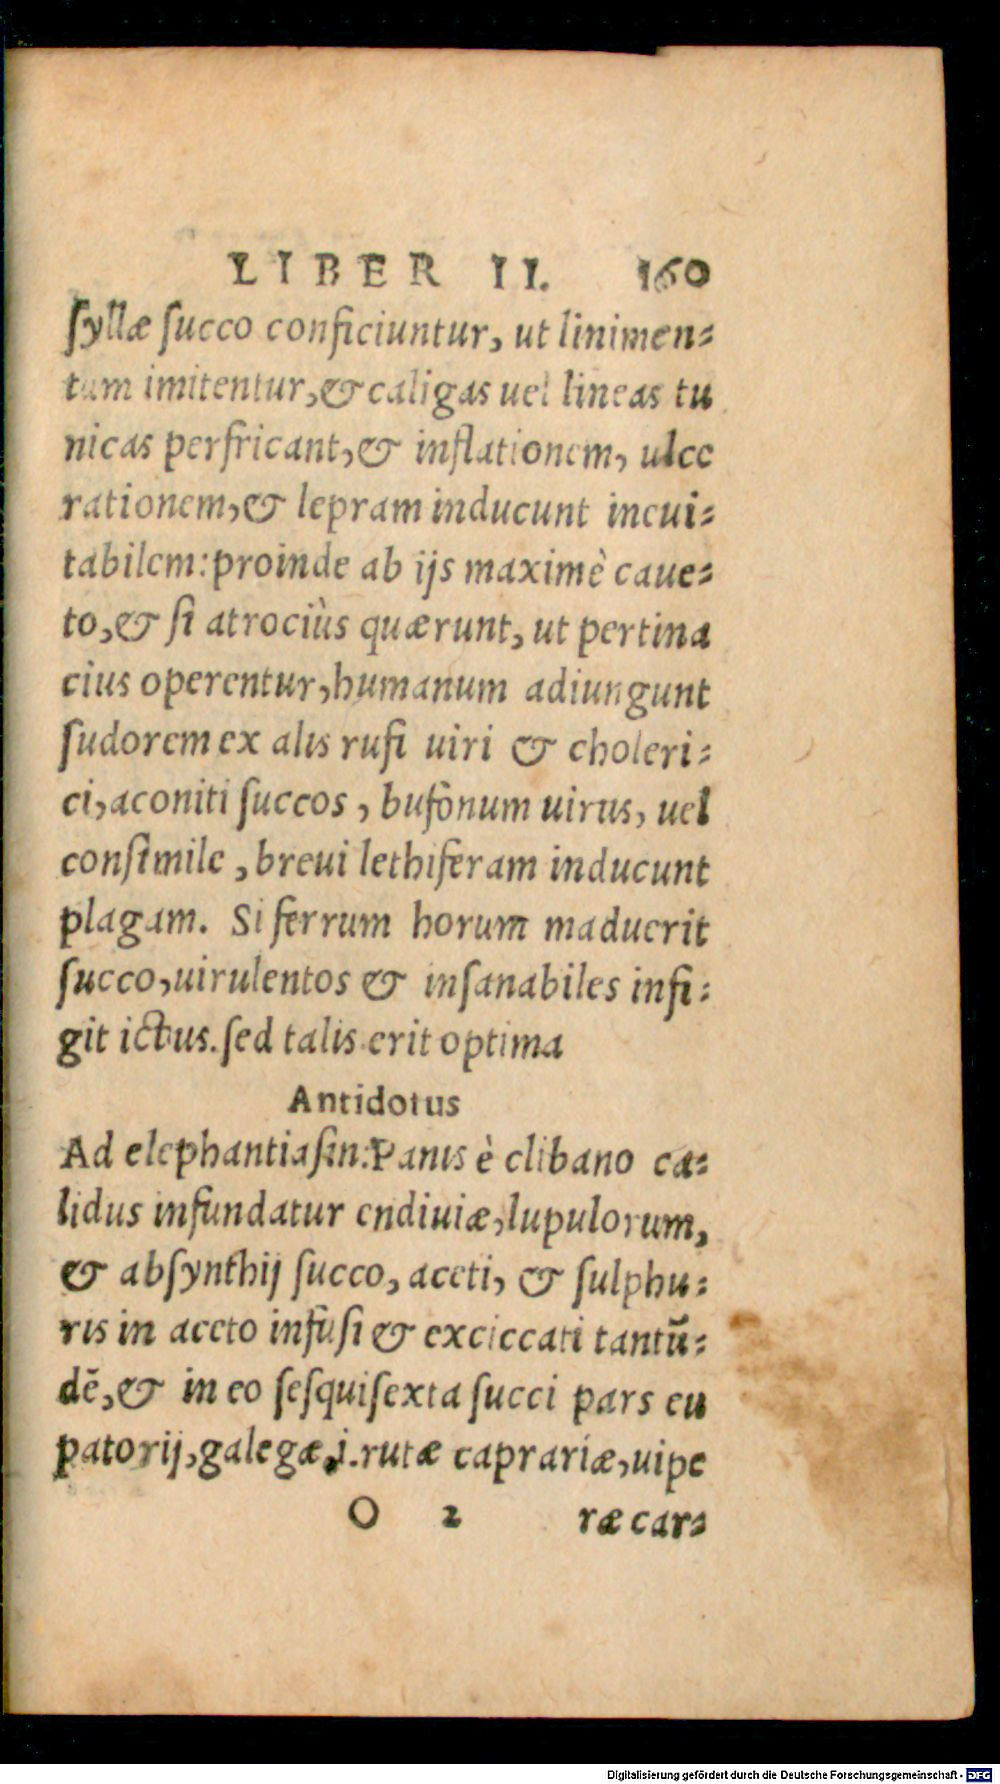 LIBER II. 160
ſyllæ ſucco conficiuntur, ut linimen-
tum imitentur, & caligas uel lineas tu
nicas perfricant, & inflationem, ulce
rationem, & lepram inducunt ineui-
tabilem: proinde ab ijs maximè caue-
to, & ſi atrociùs quærunt, ut pertina
cius operentur, humanum adiungunt
ſudorem ex alis rufi uiri & choleri-
ci, aconiti ſuccos, bufonum uirus, uel
conſimile, breui lethiferam inducunt
plagam. Si ferrum horum maduerit
ſucco, uirulentos & inſanabiles infi-
git ictus. ſed talis erit optima
Antidotus
Ad elephantiaſin: Panis è clibano ca-
lidus infundatur endiuiæ, lupulorum,
& abſynthij ſucco, aceti, & ſulphu-
ris in aceto infuſi & exciccati tantũ-
dẽ, & in eo ſeſquiſexta ſucci pars eu
patorij, galegæ, i. rutæ caprariæ, uipe
O 2 ræ car-
Digitalisierung gefördert durch die Deutsche Forschungsgemeinschaft - DFG